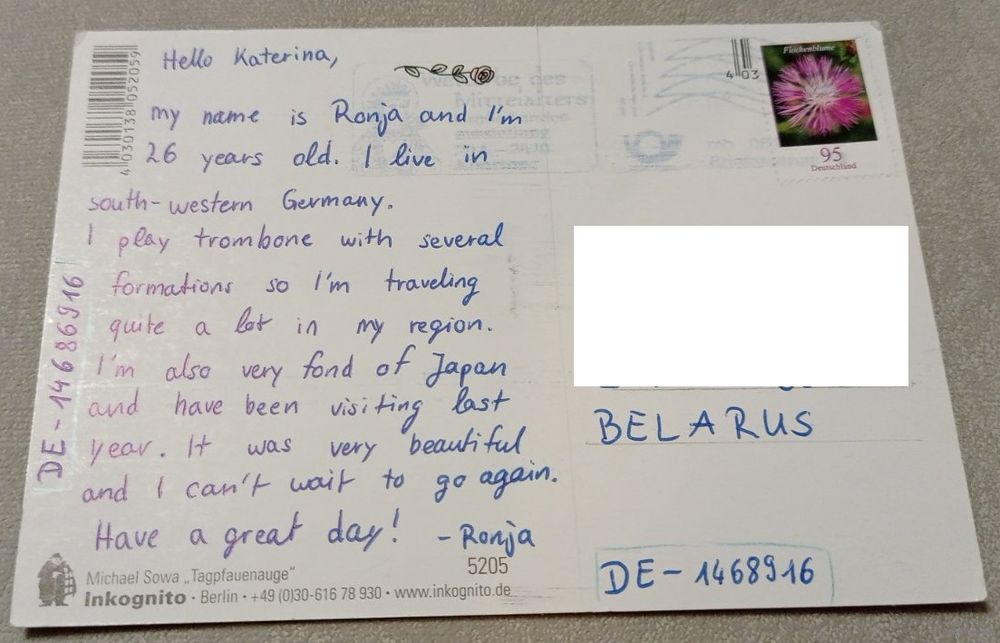 Hello Katerina,
my name is Ronja and I'm
26 years old. I live in
south-western Germany.
I play trombone with several
formations so I'm traveling
quite a lot in my region.
I'm also very fond of Japan
and have been visiting last
year. It was very beautiful
and I can't wait to go again.
Have a great day! - Ronja
DE-14686916
4030138052059
Michael Sowa „Tagpfauenauge“
5205
Inkognito · Berlin · +49 (0)30-616 78 930 · www.inkognito.de
4 03
Flockenblume
95
Deutschland
BELARUS
DE-1468916